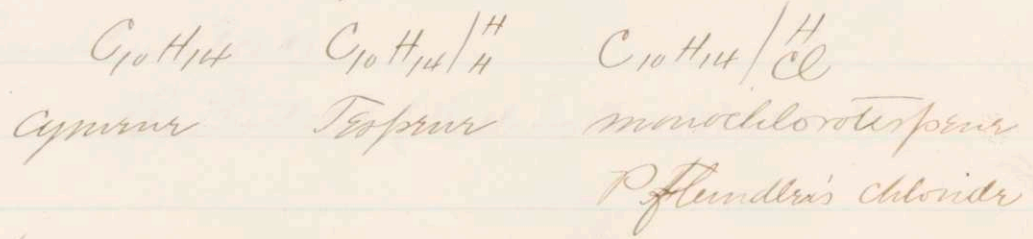 C10H14 C10H14/H H C10H14/H Cl
cymene Terpene monochloroterpene
P. Fleindler's chloride